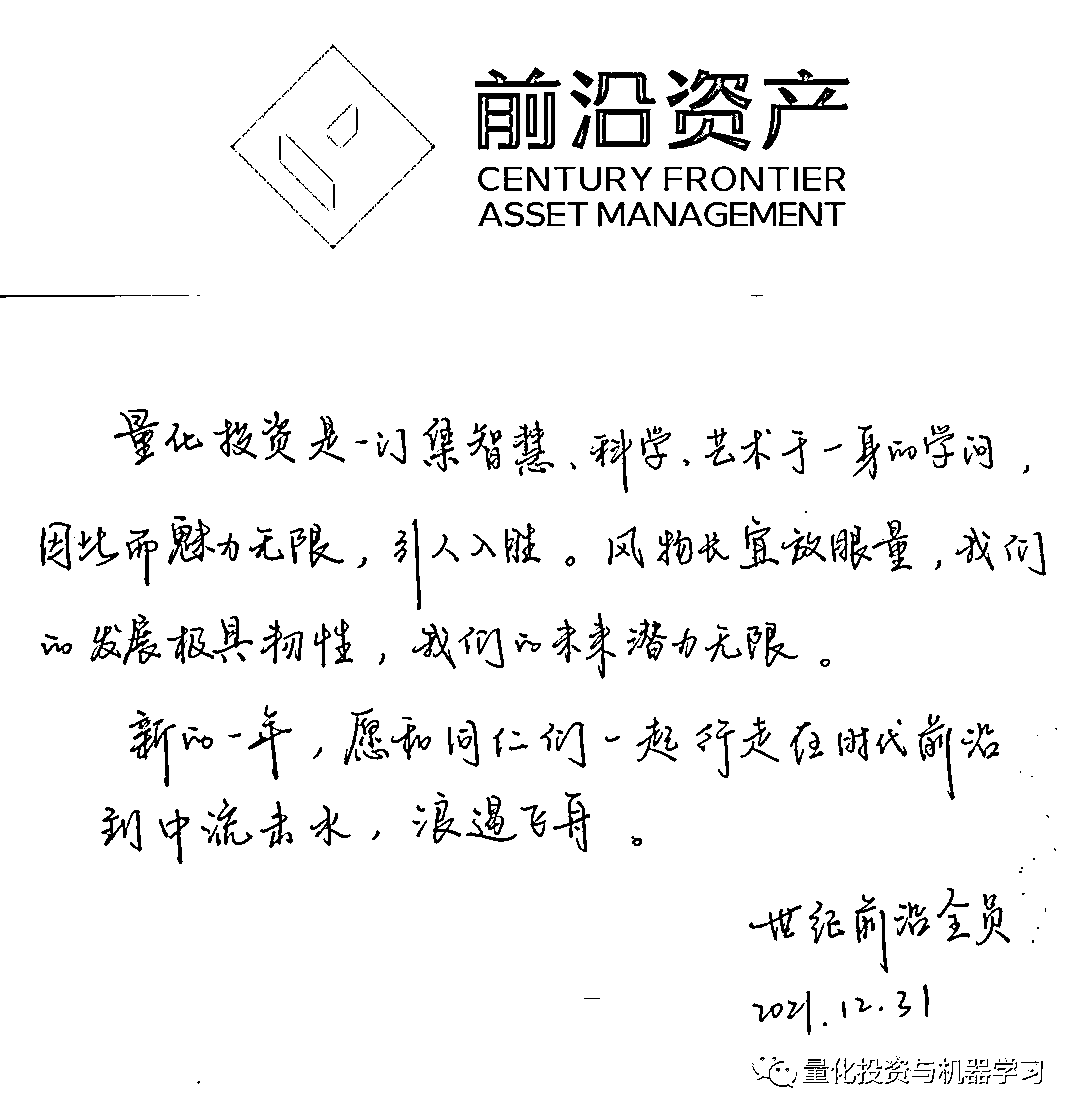 前沿资产
CENTURY FRONTIER
ASSET MANAGEMENT
量化投资是一门集智慧、科学、艺术于一身的学问，
因此而魅力无限，引人入胜。风物长宜放眼量，我们
的发展极具韧性，我们的未来潜力无限。
新的一年，愿和同仁们一起行走在时代前沿
到中流击水，浪遏飞舟。
世纪前沿全员
2021.12.31
量化投资与机器学习